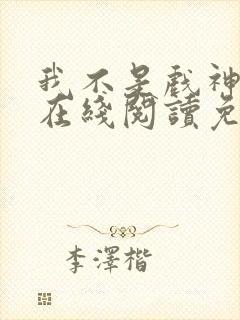 我不是戲神
在綫閱讀免
李澤楷